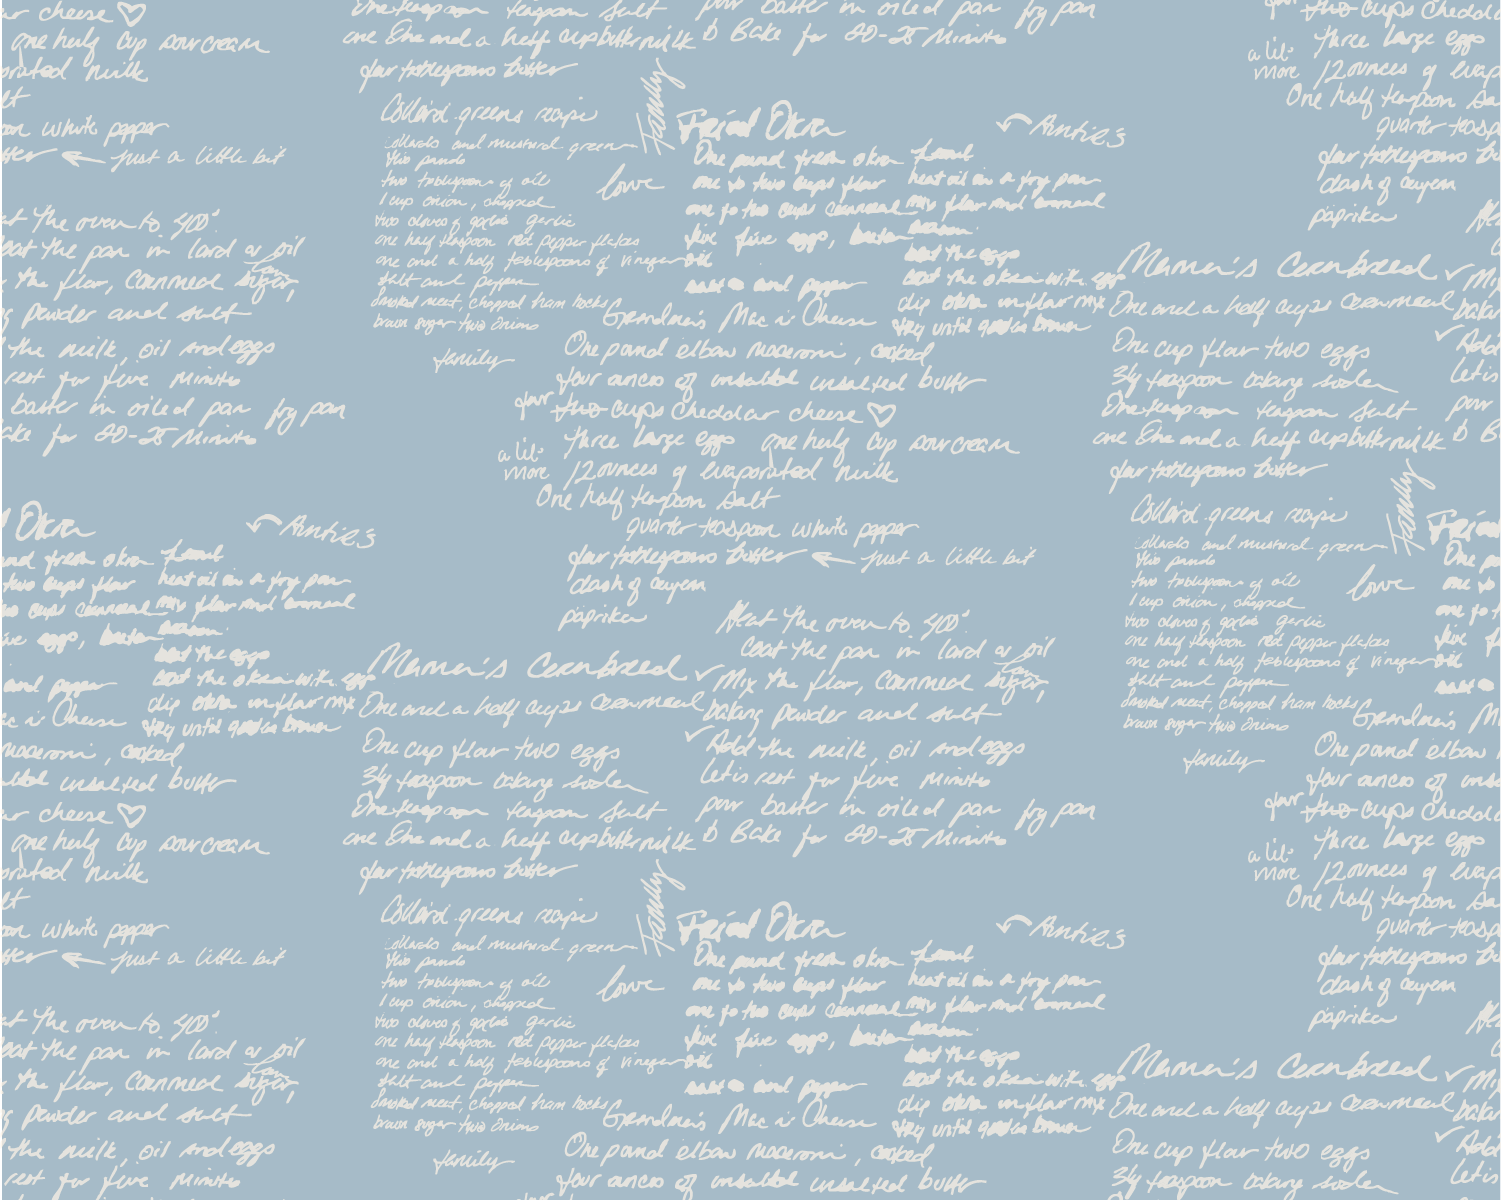 Mamaw's Cornbread
One and a half cups cornmeal
One cup flour two eggs
3/4 teaspoon baking soda
One teaspoon teaspoon salt
one One and a half cup buttermilk
four tablespoons butter
Heat the oven to 400°
Coat the pan in lard or oil
✓ Mix the flour, cornmeal sugar,
baking powder and salt
✓ Add the milk, oil and eggs
Let is rest for five minutes
pour batter in oiled pan fry pan
Bake for 20-25 Minutes
Collard greens recipe
collards and mustard greens
two pounds
two tablespoons of oil
1 cup onion, chopped
two cloves of garlic garlic
one half teaspoon red pepper flakes
one and a half tablespoons of vinegar
salt and pepper
smoked meat, chopped ham hocks
brown sugar two onions
family
Family
love
Fried Okra
← Auntie's
One pound fresh okra
one to two cups flour
one to two cups cornmeal
five five eggs, beaten
oil
salt and pepper
heat oil in a fry pan
mix flour and cornmeal
beat the eggs
coat the okra in with egg
dip okra in flour mix
fry until golden brown
Grandma's Mac n Cheese
One pound elbow macaroni, cooked
four ounces of unsalted unsalted butter
four two cups Cheddar cheese ♡
three large eggs one half cup sour cream
a lil' more
12 ounces of evaporated milk
One half teaspoon salt
quarter teaspoon white pepper
four tablespoons butter ← just a little bit
dash of cayenne
paprika